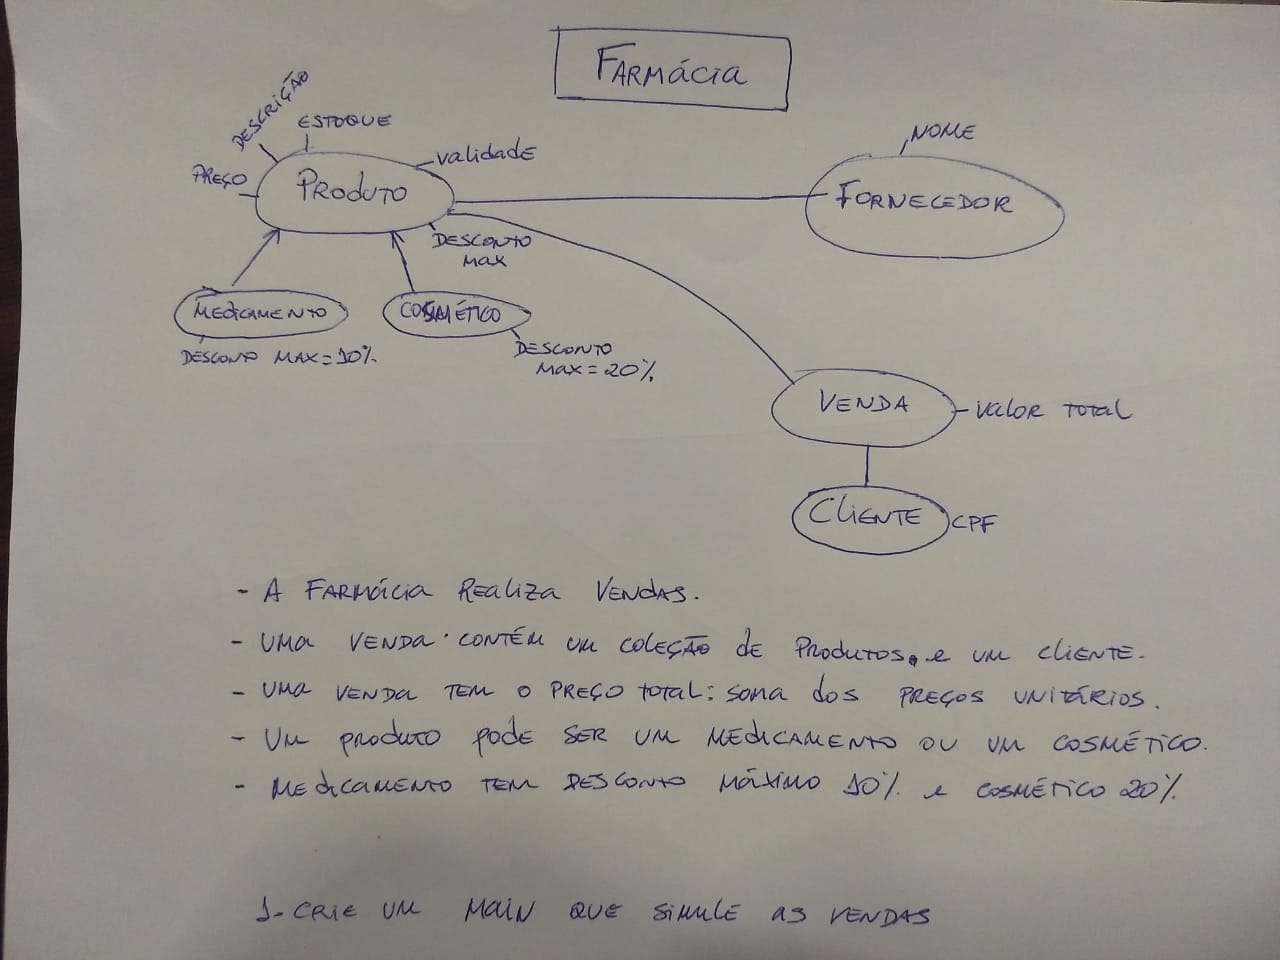 FARMÁCIA
DESCRIÇÃO
ESTOQUE
validade
PREÇO
PRODUTO
NOME
FORNECEDOR
DESCONTO
MAX
MEDICAMENTO
COSMÉTICO
DESCONTO MAX = 10%
DESCONTO
MAX = 20%
VENDA
VALOR TOTAL
CLIENTE
CPF
- A FARMÁCIA REALIZA VENDAS.
- UMA VENDA CONTÉM UM COLEÇÃO de PRODUTOS, e UM CLIENTE.
- UMA VENDA TEM O PREÇO TOTAL: SOMA dos PREÇOS UNITÁRIOS.
- UM PRODUTO PODE SER UM MEDICAMENTO OU UM COSMÉTICO.
- MEDICAMENTO TEM DESCONTO MÁXIMO 10% e COSMÉTICO 20%.
1- CRIE UM MAIN QUE SIMULE AS VENDAS